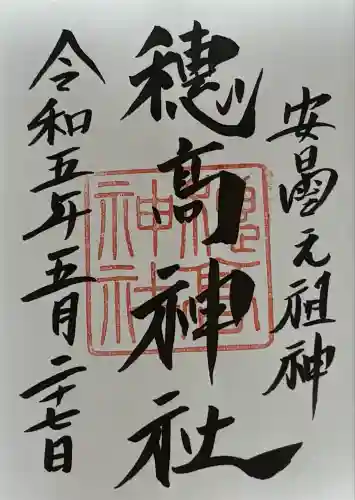 安曇元祖神
穂高神社
令和五年五月二十七日
穂高神社